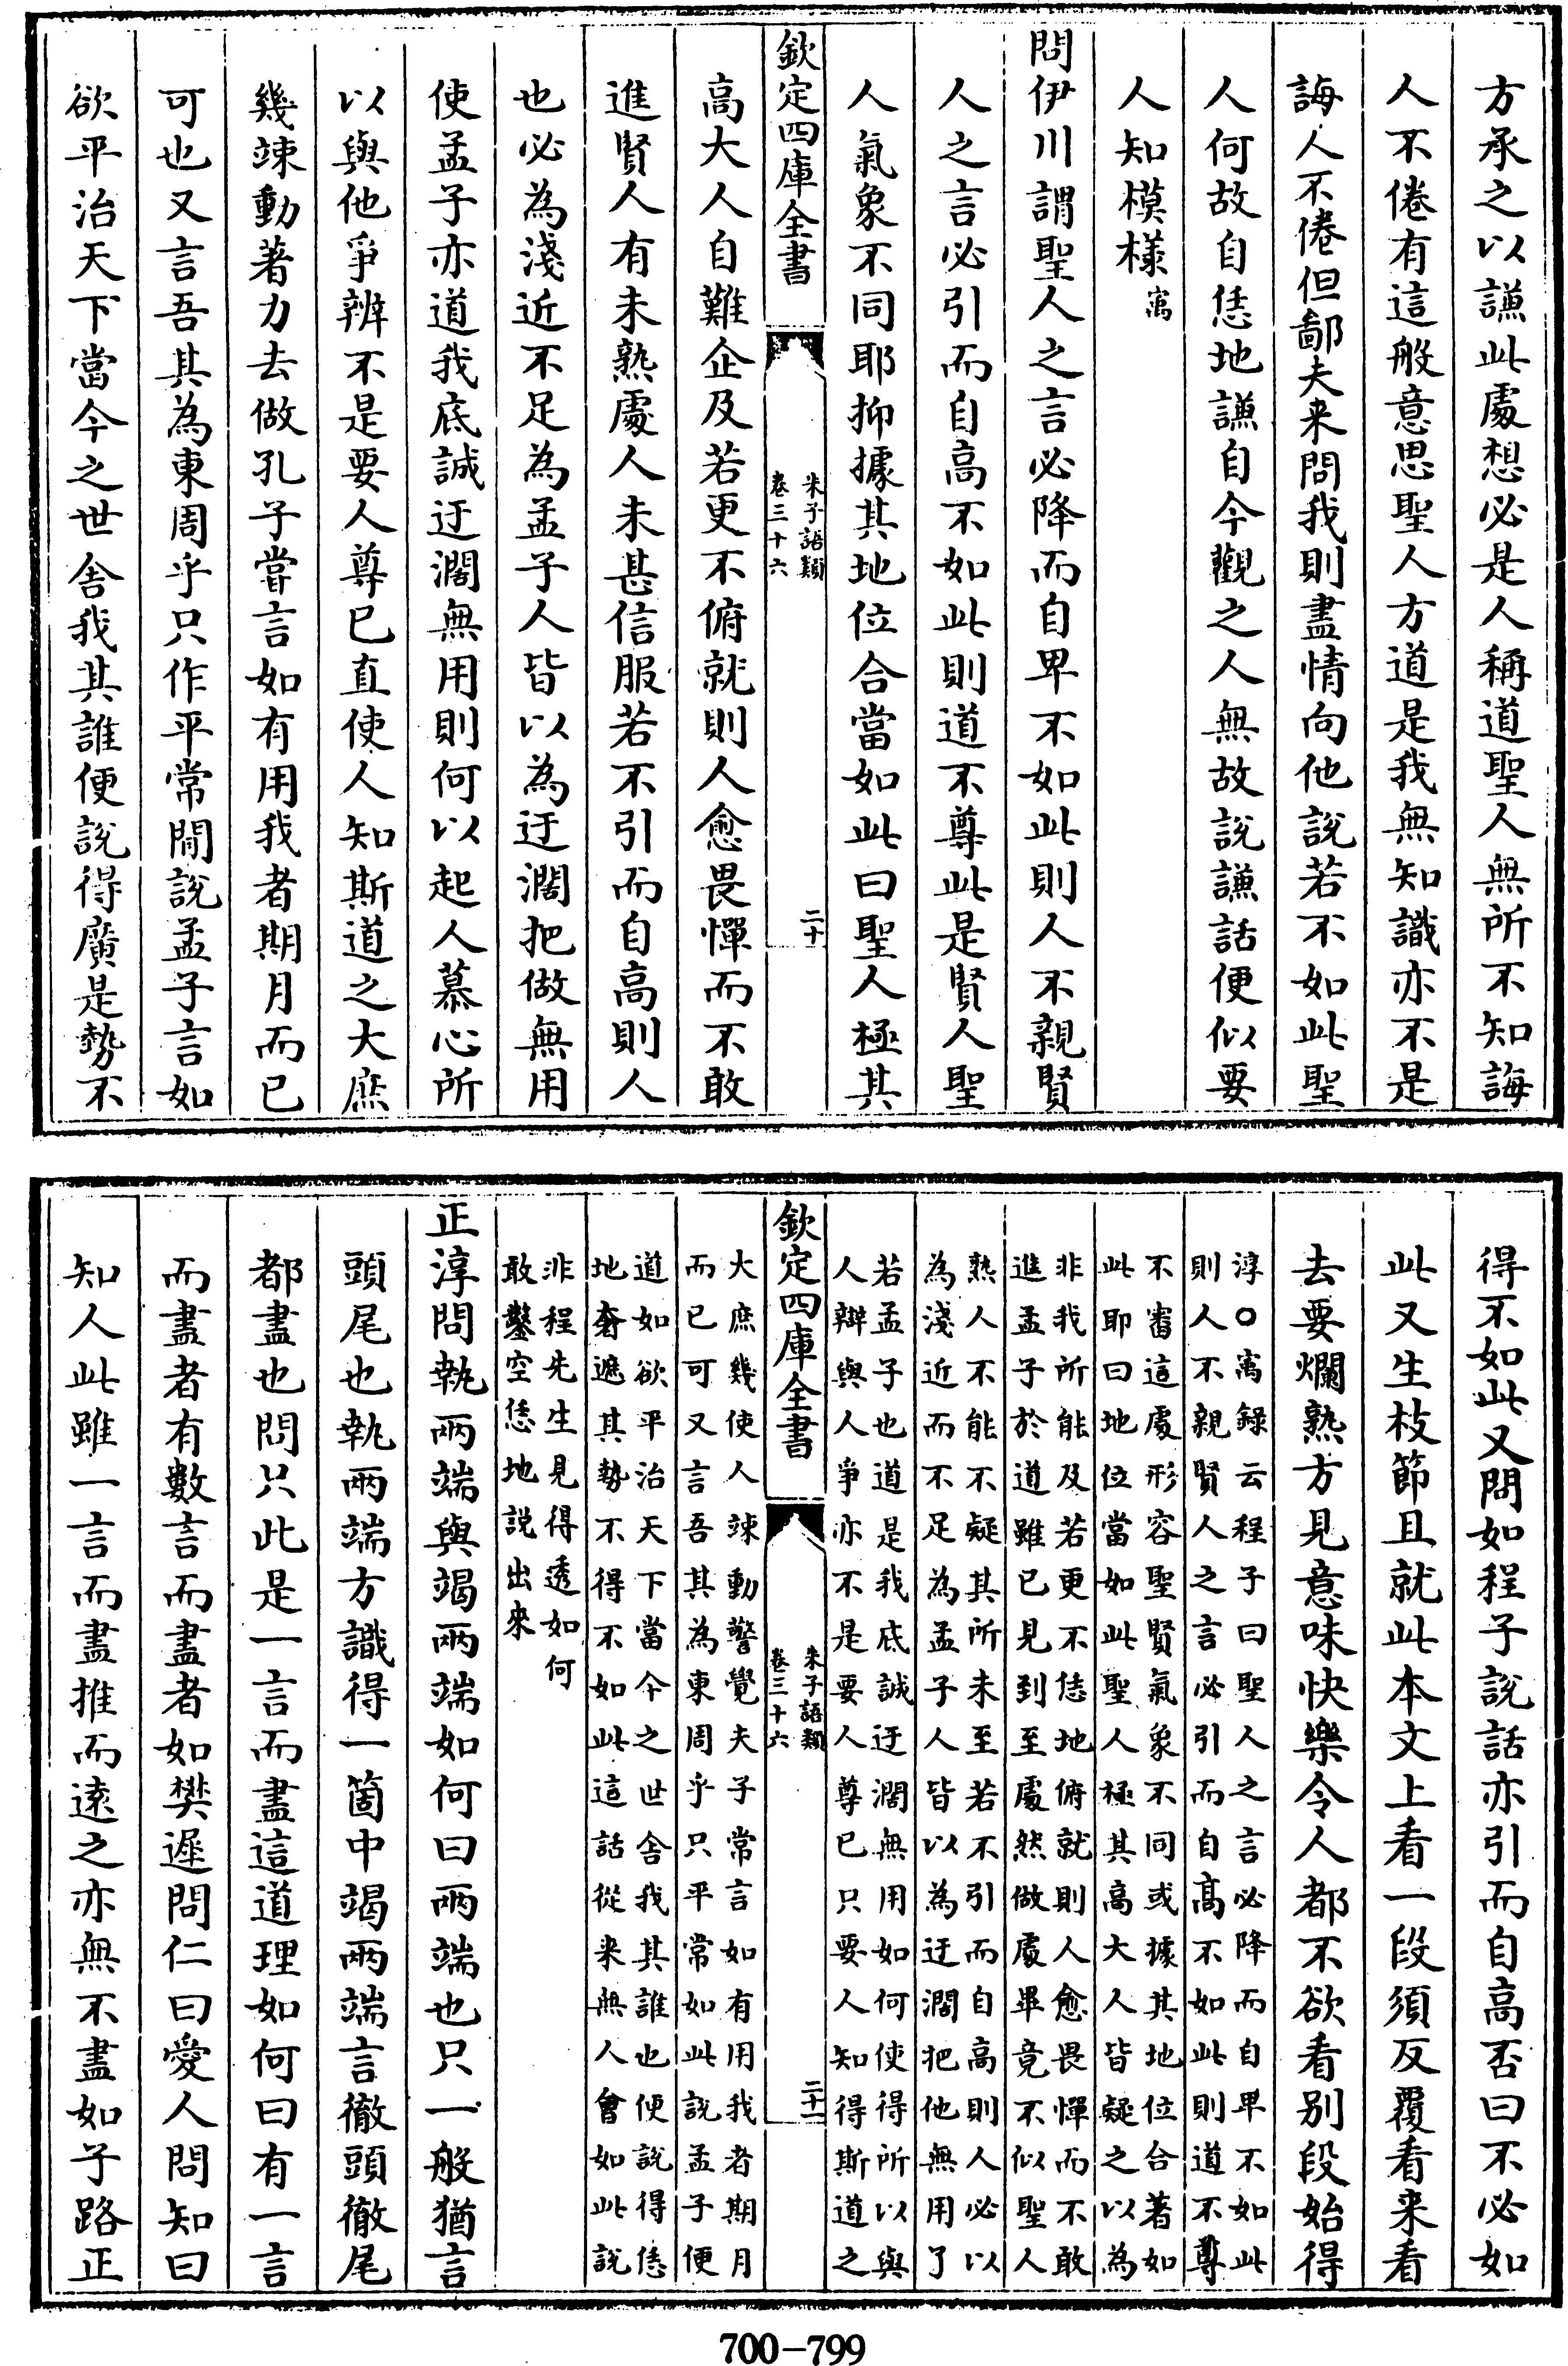 方承之以謙此處想必是人稱道聖人無所不知誨
人不倦有這般意思聖人方道是我無知識亦不是
誨人不倦但鄙夫来問我則盡情向他說若不如此聖
人何故自恁地謙自今觀之人無故說謙話便似要
人知模樣㝢
問伊川謂聖人之言必降而自卑不如此則人不親賢
人之言必引而自高不如此則道不尊此是賢人聖
人氣象不同耶抑據其地位合當如此曰聖人極其
欽定四庫全書
朱子語類
卷三十六
二十
高大人自難企及若更不俯就則人愈畏憚而不敢
進賢人有未熟處人未甚信服若不引而自高則人
也必為淺近不足為孟子人皆以為迂濶把做無用
使孟子亦道我底誠迂濶無用則何以起人慕心所
以與他爭辨不是要人尊已直使人知斯道之大庶
幾竦動著力去做孔子嘗言如有用我者期月而已
可也又言吾其為東周乎只作平常閒說孟子言如
欲平治天下當今之世舍我其誰便說得廣是勢不
得不如此又問如程子說話亦引而自高否曰不必如
此又生枝節且就此本文上看一段須反覆看来看
去要爛熟方見意味快樂令人都不欲看別段始得
淳○㝢錄云程子曰聖人之言必降而自卑不如此
則人不親賢人之言必引而自髙不如此則道不尊
不審這處形容聖賢氣象不同或據其地位合著如
此耶曰地位當如此聖人極其高大人皆疑之以為
非我所能及若更不恁地俯就則人愈畏憚而不敢
進孟子於道雖已見到至處然做處畢竟不似聖人
熟人不能不疑其所未至若不引而自高則人必以
為淺近而不足為孟子人皆以為迂濶把他無用了
若孟子也道是我底誠迂濶無用如何使得所以與
人辯與人爭亦不是要人尊已只要人知得斯道之
欽定四庫全書
朱子語類
卷三十六
二十一
大庶幾使人竦動警覺夫子常言如有用我者期月
而已可又言吾其為東周乎只平常如此說孟子便
道如欲平治天下當今之世舍我其誰也便說得恁
地奢遮其勢不得不如此這話從来無人會如此說
非程先生見得透如何
敢鑿空恁地説出來
正淳問執兩端與竭兩端如何曰兩端也只一般猶言
頭尾也執兩端方識得一箇中竭兩端言徹頭徹尾
都盡也問只此是一言而盡這道理如何曰有一言
而盡者有數言而盡者如樊遲問仁曰愛人問知曰
知人此雖一言而盡推而逺之亦無不盡如子路正
700-799